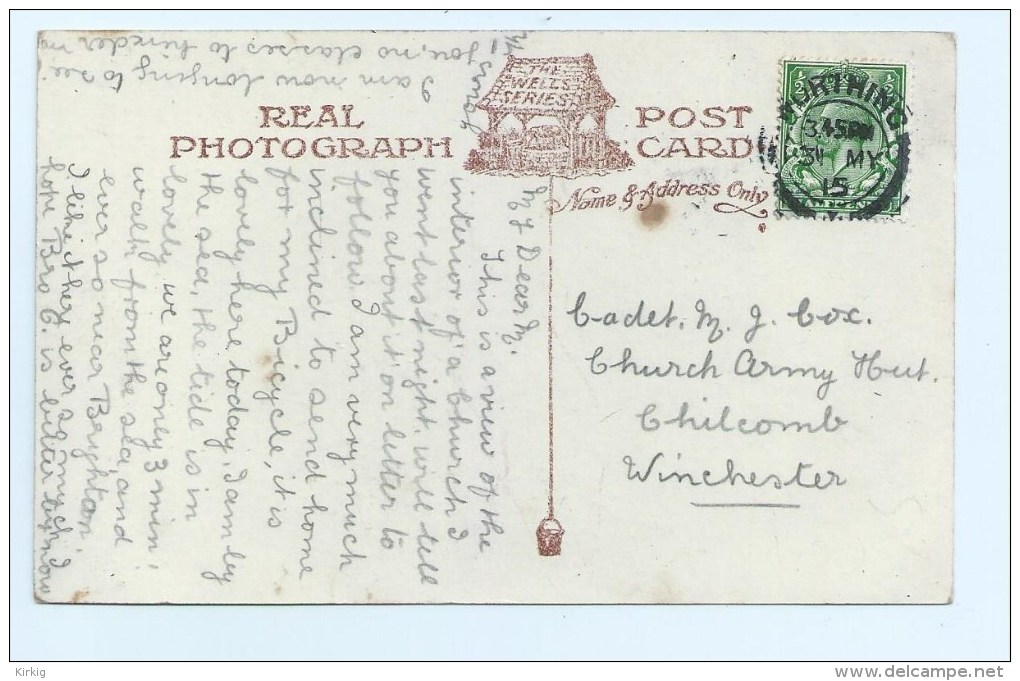 THE
WELLS
SERIES
REAL
PHOTOGRAPH
POST
CARD
Name & Address Only
WORTHING
3 45PM
31 MY
15
Cadet. M. J. Cox.
Church Army Hut.
Chilcomb
Winchester
My Dear M.
This is a view of the
interior of a Church I
went last night. will tell
you about it on letter to
follow. I am very much
inclined to send home
for my Bicycle, it is
lovely here today. I am by
the sea, the tide is in
lovely we are only 3 min,
walk from the sea, and
ever so near Brighton
I like it here ever so much I
hope Bro C. is better by now
I am now longing to see
you, no classes to hinder me
Yours
Kirkig
www.delcampe.net